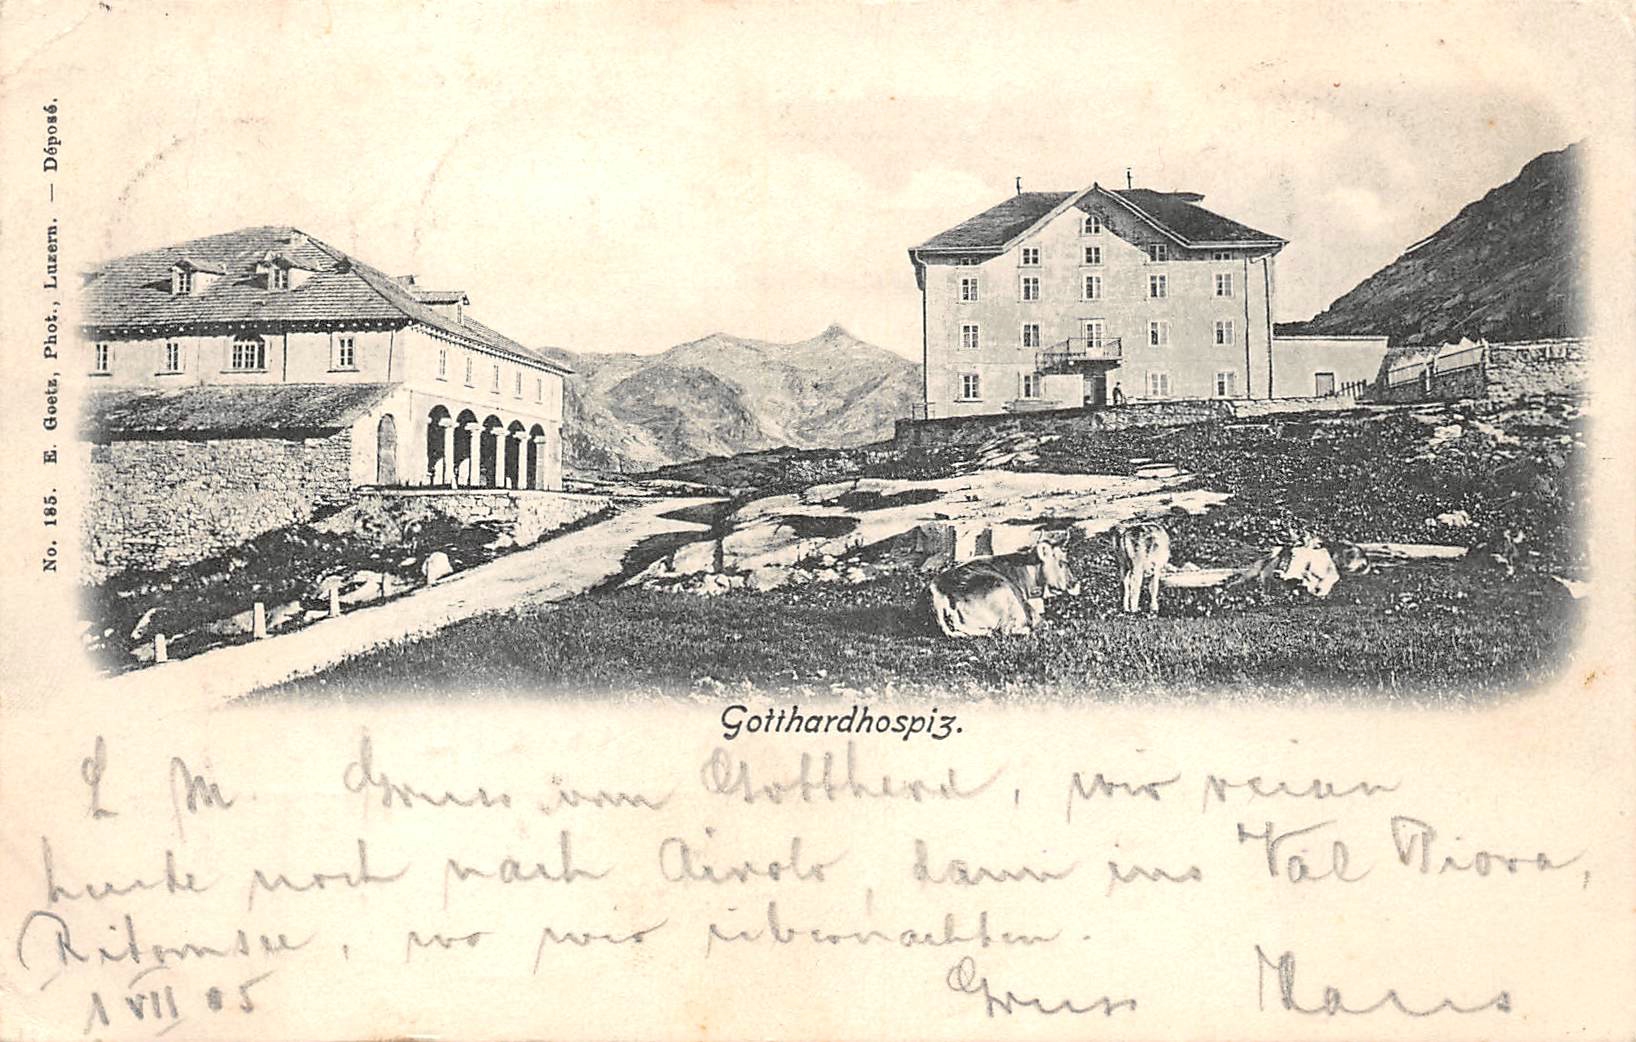 No. 185. E. Goetz, Phot., Luzern. — Déposé.
Gotthardhospiz.
L M. Gruss vom Gotthard, wir reisen
heute noch nach Airolo, dann ins Val Piora,
Ritomsee, wo wir übernachten.
Gruss Hans
1 VII 05